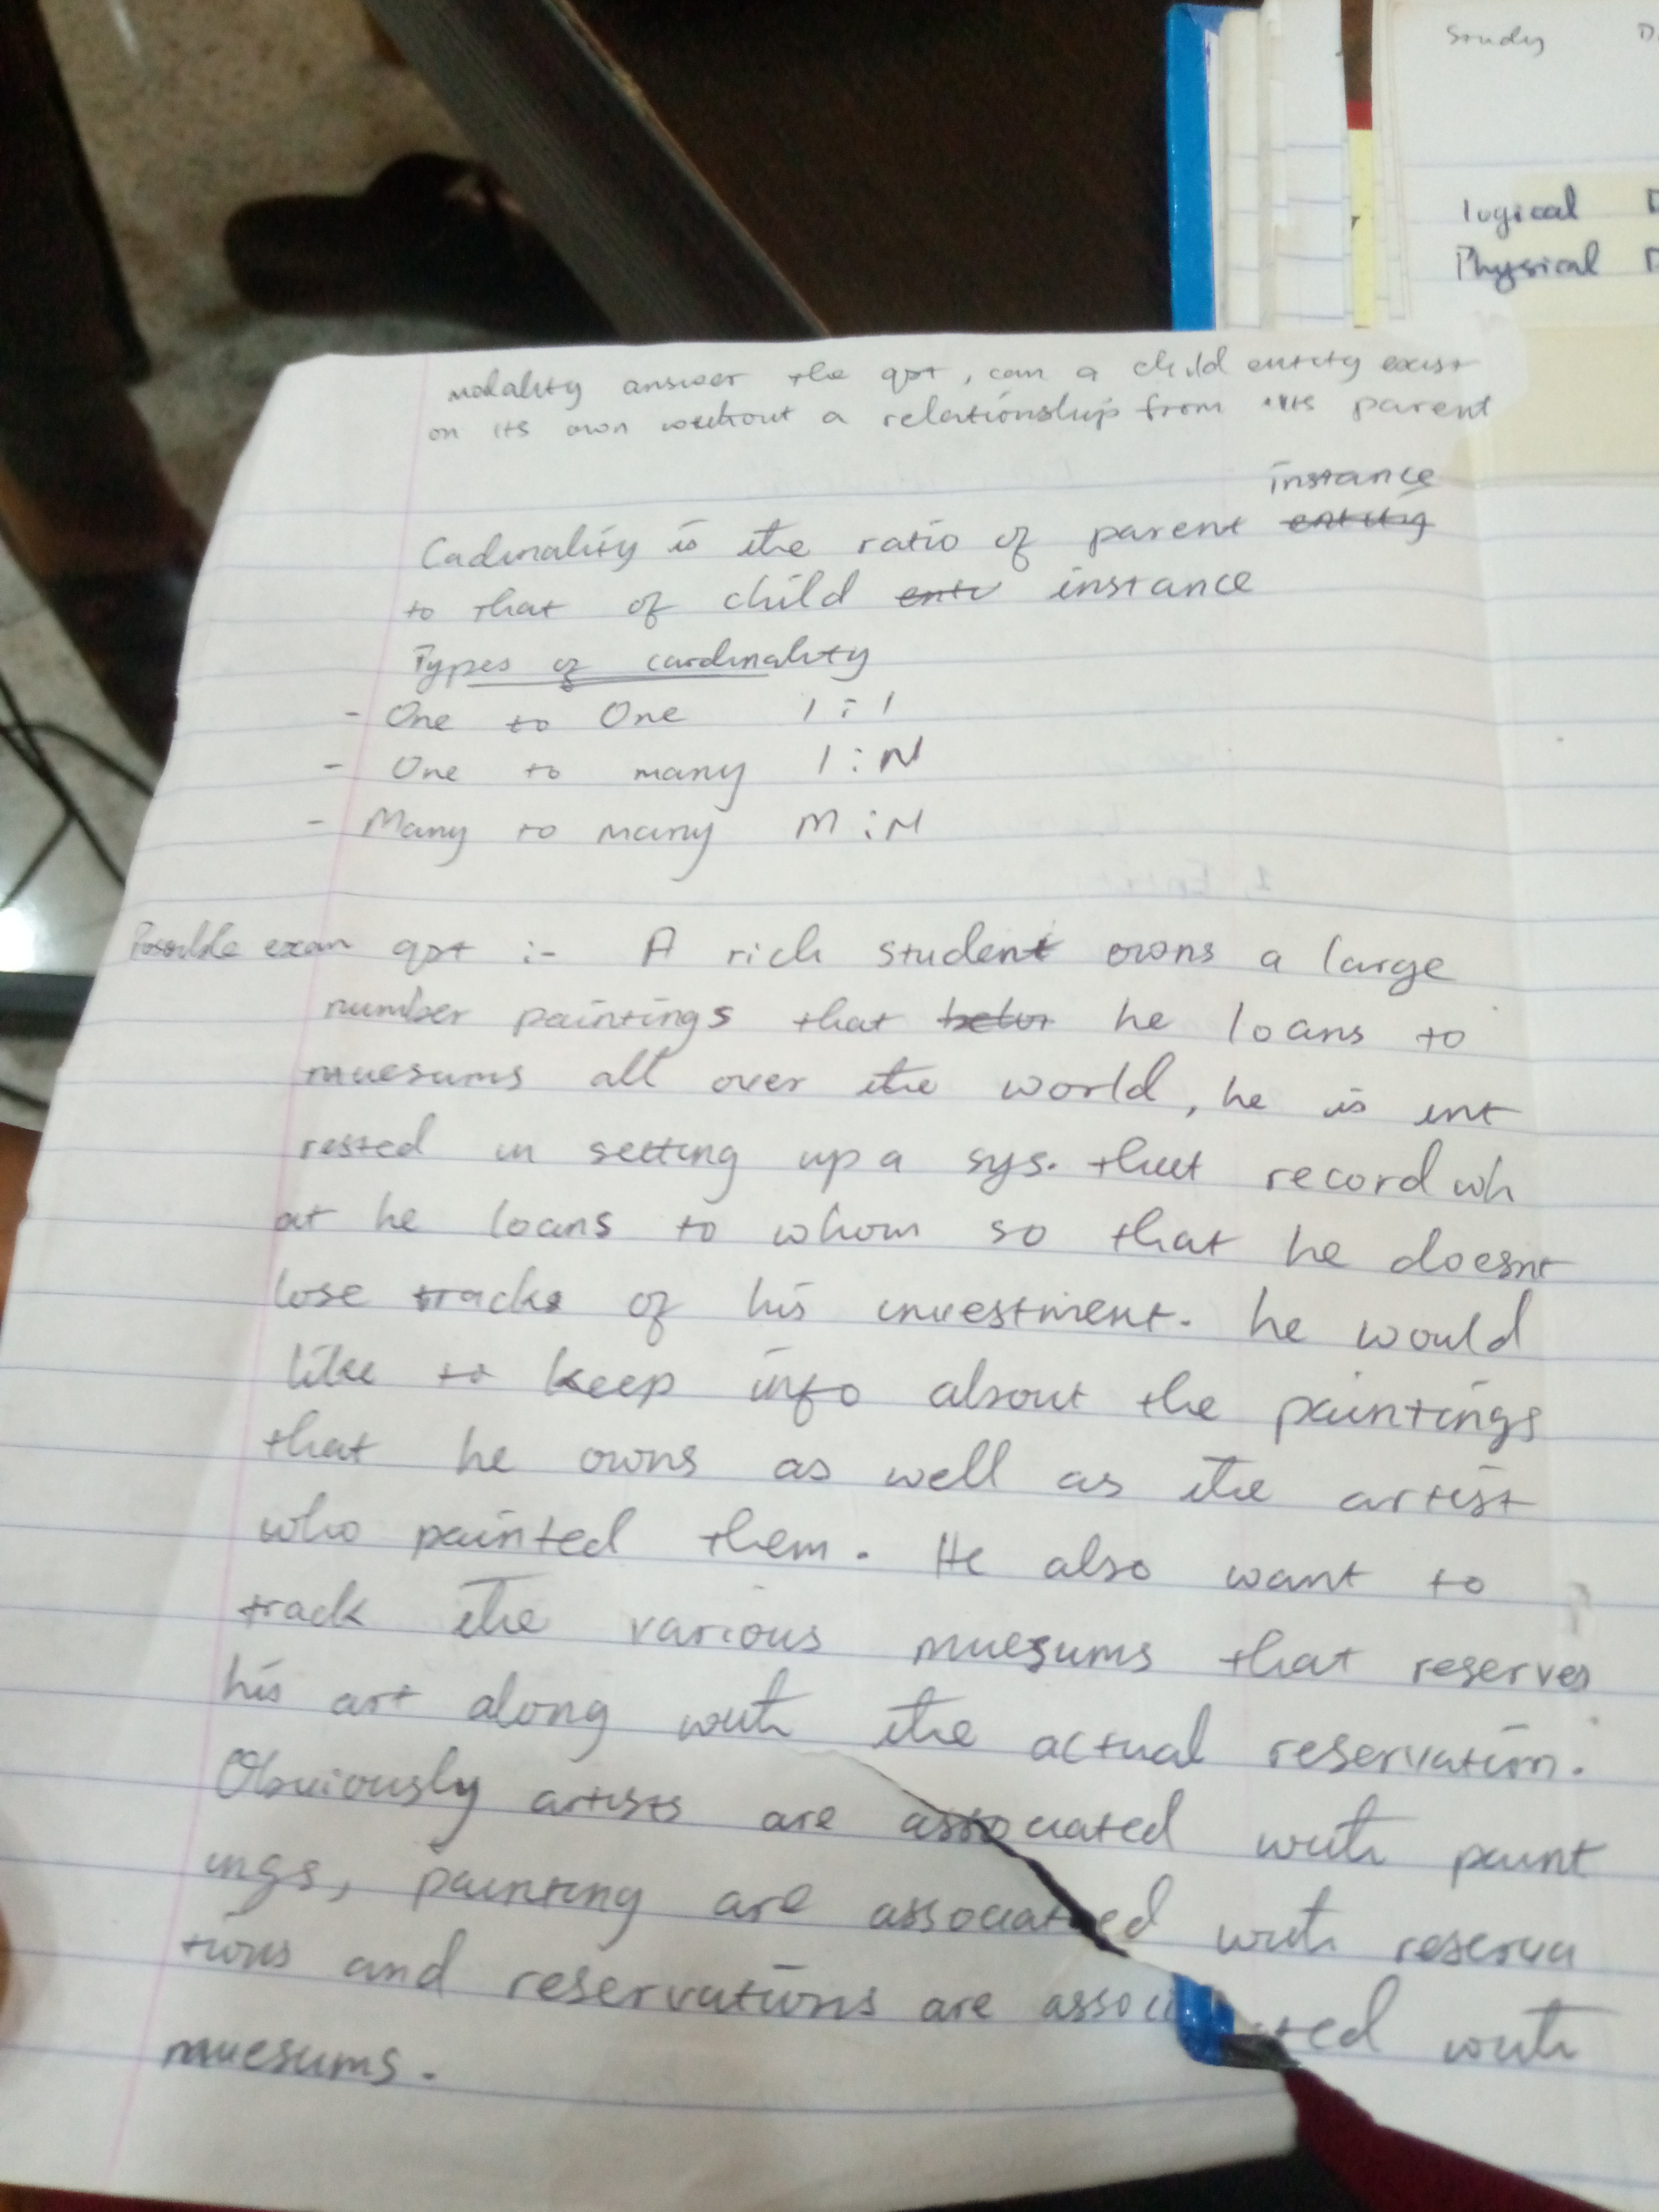 Study
logical D
Physical D
modality answer the qst, can a child entity exist
on its own without a relationship from its parent
instance
Cadinality is the ratio of parent entity
to that of child enti instance
Types of cardinality
- One to One 1 : 1
- One to many 1 : N
- Many to many M : N
Possible exam qst :- A rich student owns a large
number paintings that he loans to
muesums all over the world, he is int
rested in setting up a sys. that record wh
at he loans to whom so that he doesnt
lose tracks of his investment. he would
like to keep info about the paintings
that he owns as well as the artist
who painted them. He also want to
track the various muesums that reserves
his art along with the actual reservation.
Obviously artists are associated with paint
ings, painting are associated with reserva
tions and reservations are associated with
muesums.